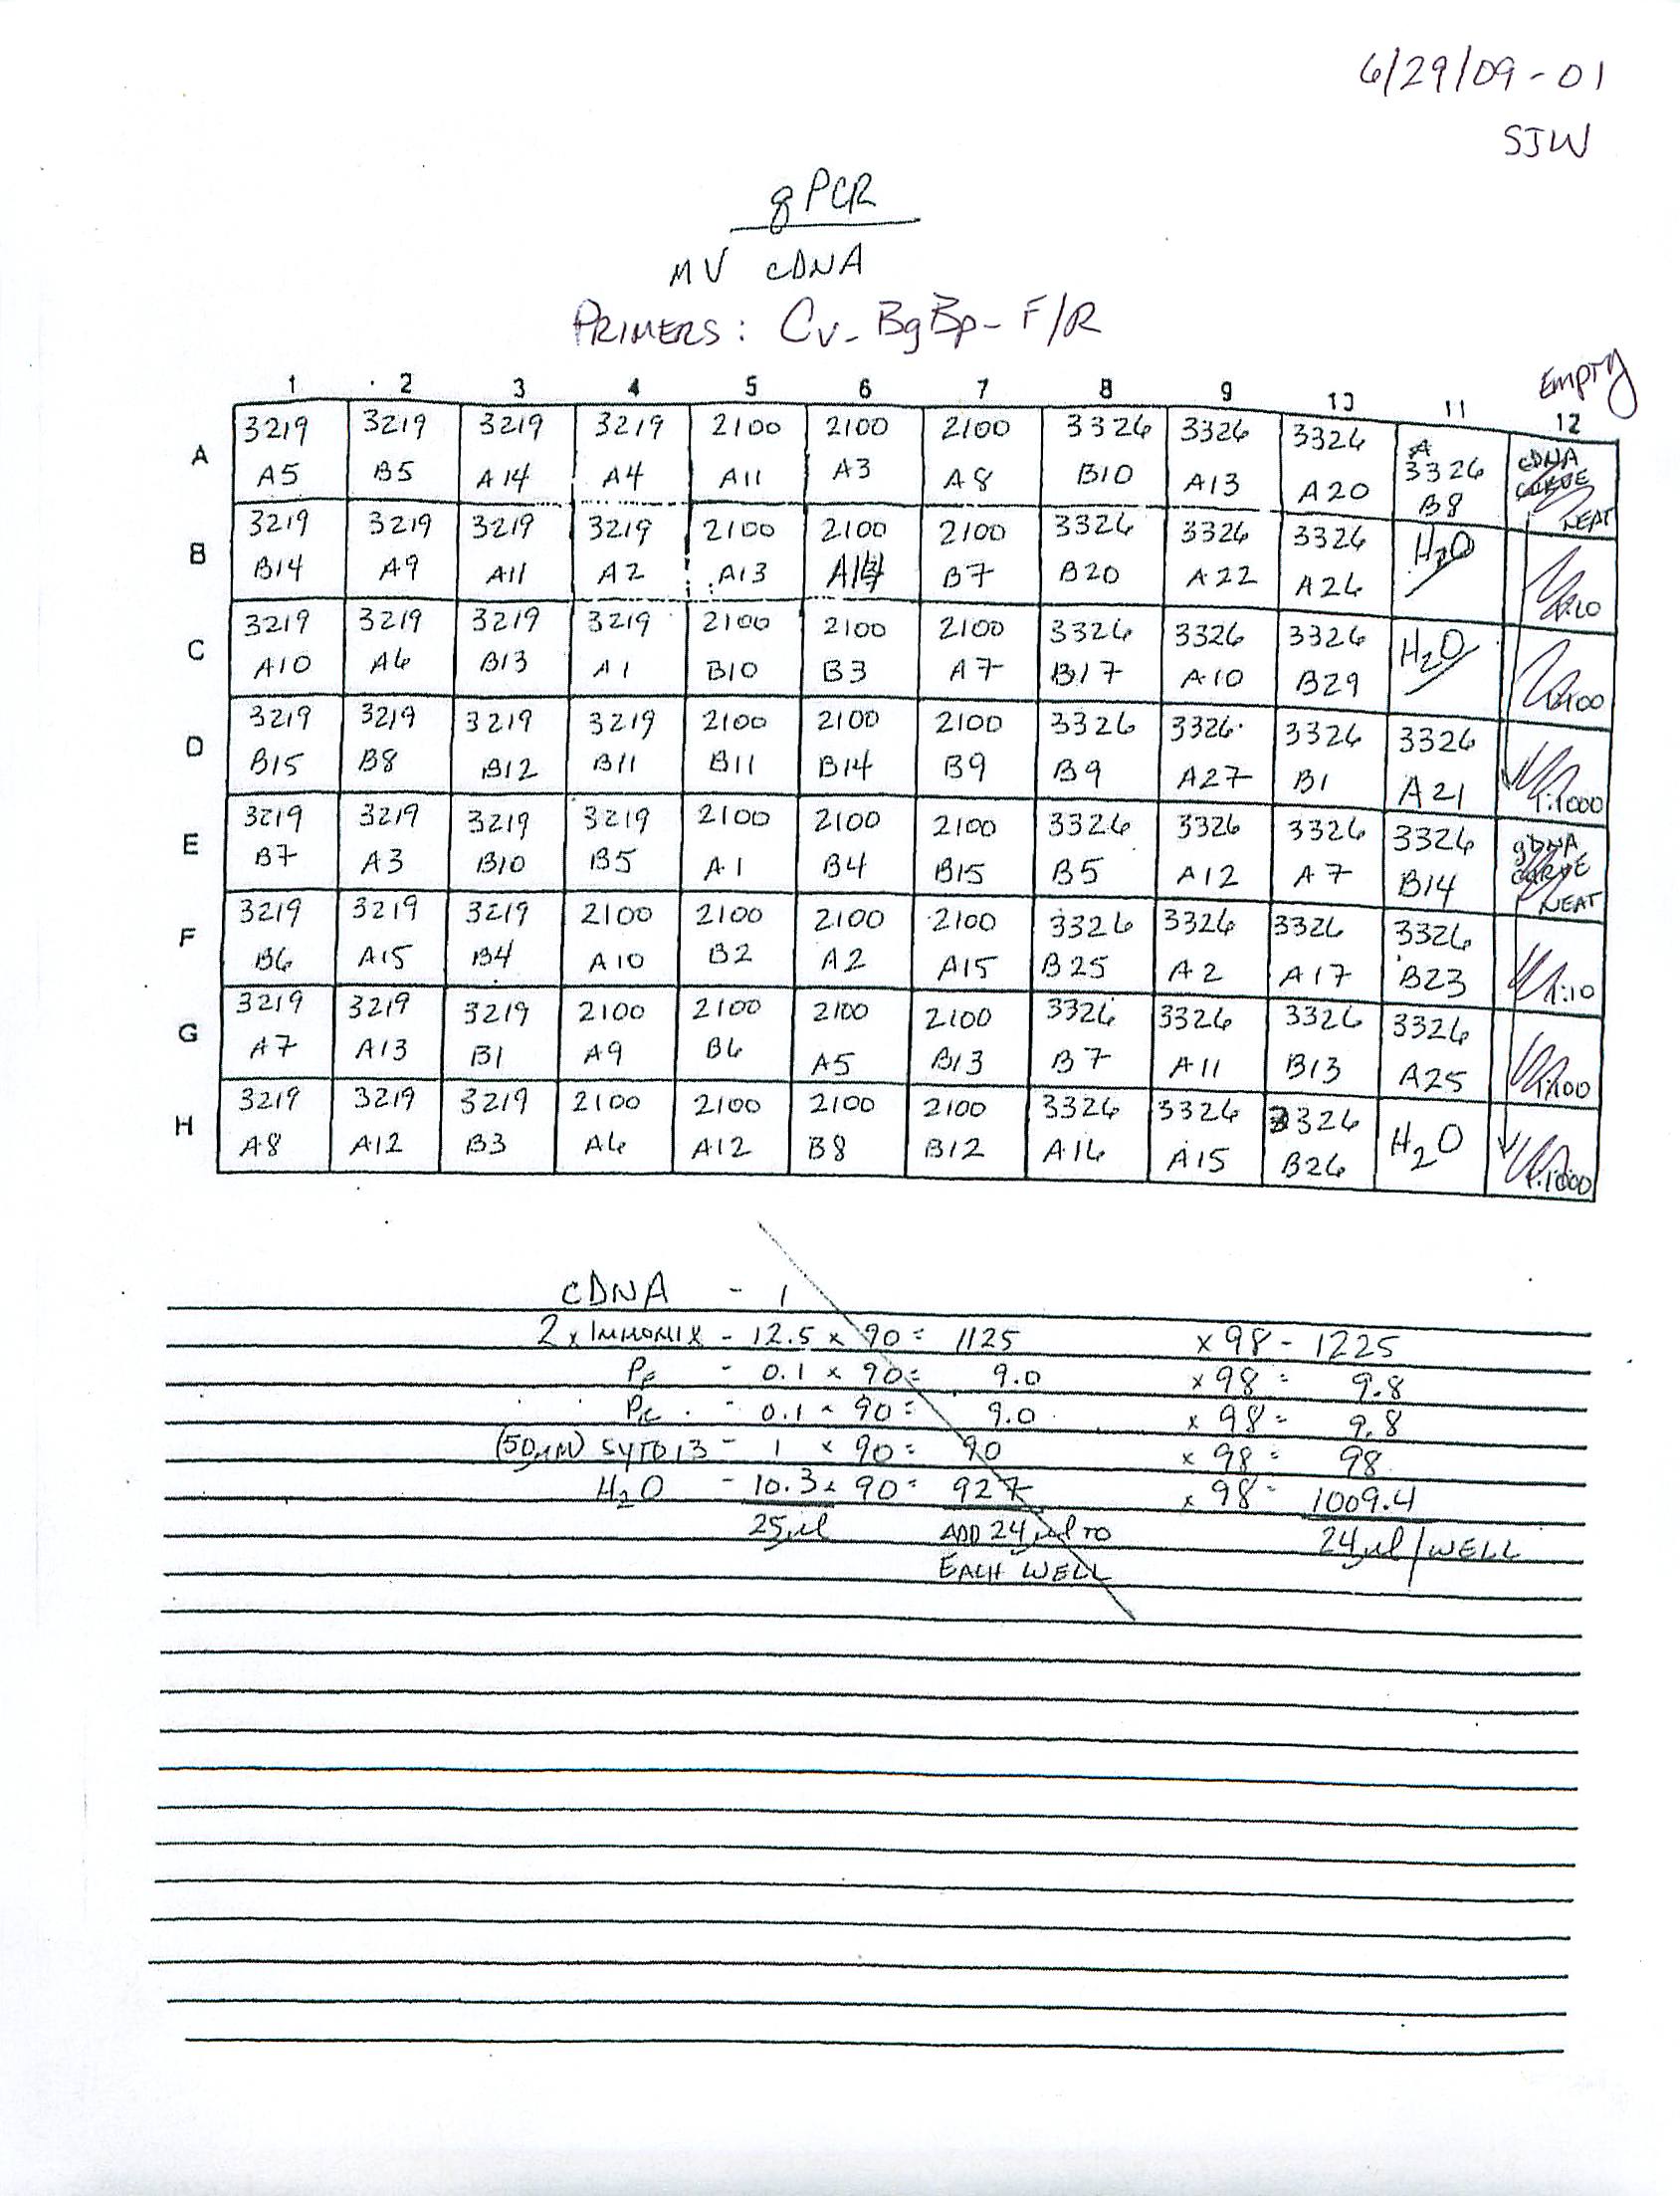 6/29/09-01
SJW
qPCR
MV cDNA
PRIMERS: Cv_BgBp-F/R
Empty
1 2 3 4 5 6 7 8 9 10 11 12
A 3219 3219 3219 3219 2100 2100 2100 3326 3326 3326 3326 cDNA CURVE
A5 B5 A14 A4 A11 A3 A8 B10 A13 A20 B8 NEAT
B 3219 3219 3219 3219 2100 2100 2100 3326 3326 3326 H2O
B14 A9 A11 A2 A13 B7 B20 A22 A26
C 3219 3219 3219 3219 2100 2100 2100 3326 3326 3326 H2O
A10 A6 B13 A1 B10 B3 A7 B17 A10 B29
D 3219 3219 3219 3219 2100 2100 2100 3326 3326 3326 3326
B15 B8 B12 B11 B11 B14 B9 B9 A27 B1 A21 1:1000
E 3219 3219 3219 3219 2100 2100 2100 3326 3326 3326 3326 gDNA CURVE
B7 A3 B10 B5 A1 B4 B15 B5 A12 A7 B14 NEAT
F 3219 3219 3219 2100 2100 2100 2100 3326 3326 3326 3326
B6 A15 B4 A10 B2 A2 A15 B25 A2 A17 B23 1:10
G 3219 3219 3219 2100 2100 2100 2100 3326 3326 3326 3326
A7 A13 B1 A9 B6 A5 B13 B7 A11 B13 A25 1:100
H 3219 3219 3219 2100 2100 2100 2100 3326 3326 3326 H2O
A8 A12 B3 A6 A12 B8 B12 A16 A15 B26 1:1000
cDNA - 1
2x IMMOMIX - 12.5 x 90 = 1125 x 98 - 1225
PF - 0.1 x 90 = 9.0 x 98 = 9.8
PR - 0.1 x 90 = 9.0 x 98 = 9.8
(50µM) SYTO13 - 1 x 90 = 90 x 98 = 98
H2O - 10.3 x 90 = 927 x 98 = 1009.4
25µl ADD 24µl TO 24µl/WELL
EACH WELL